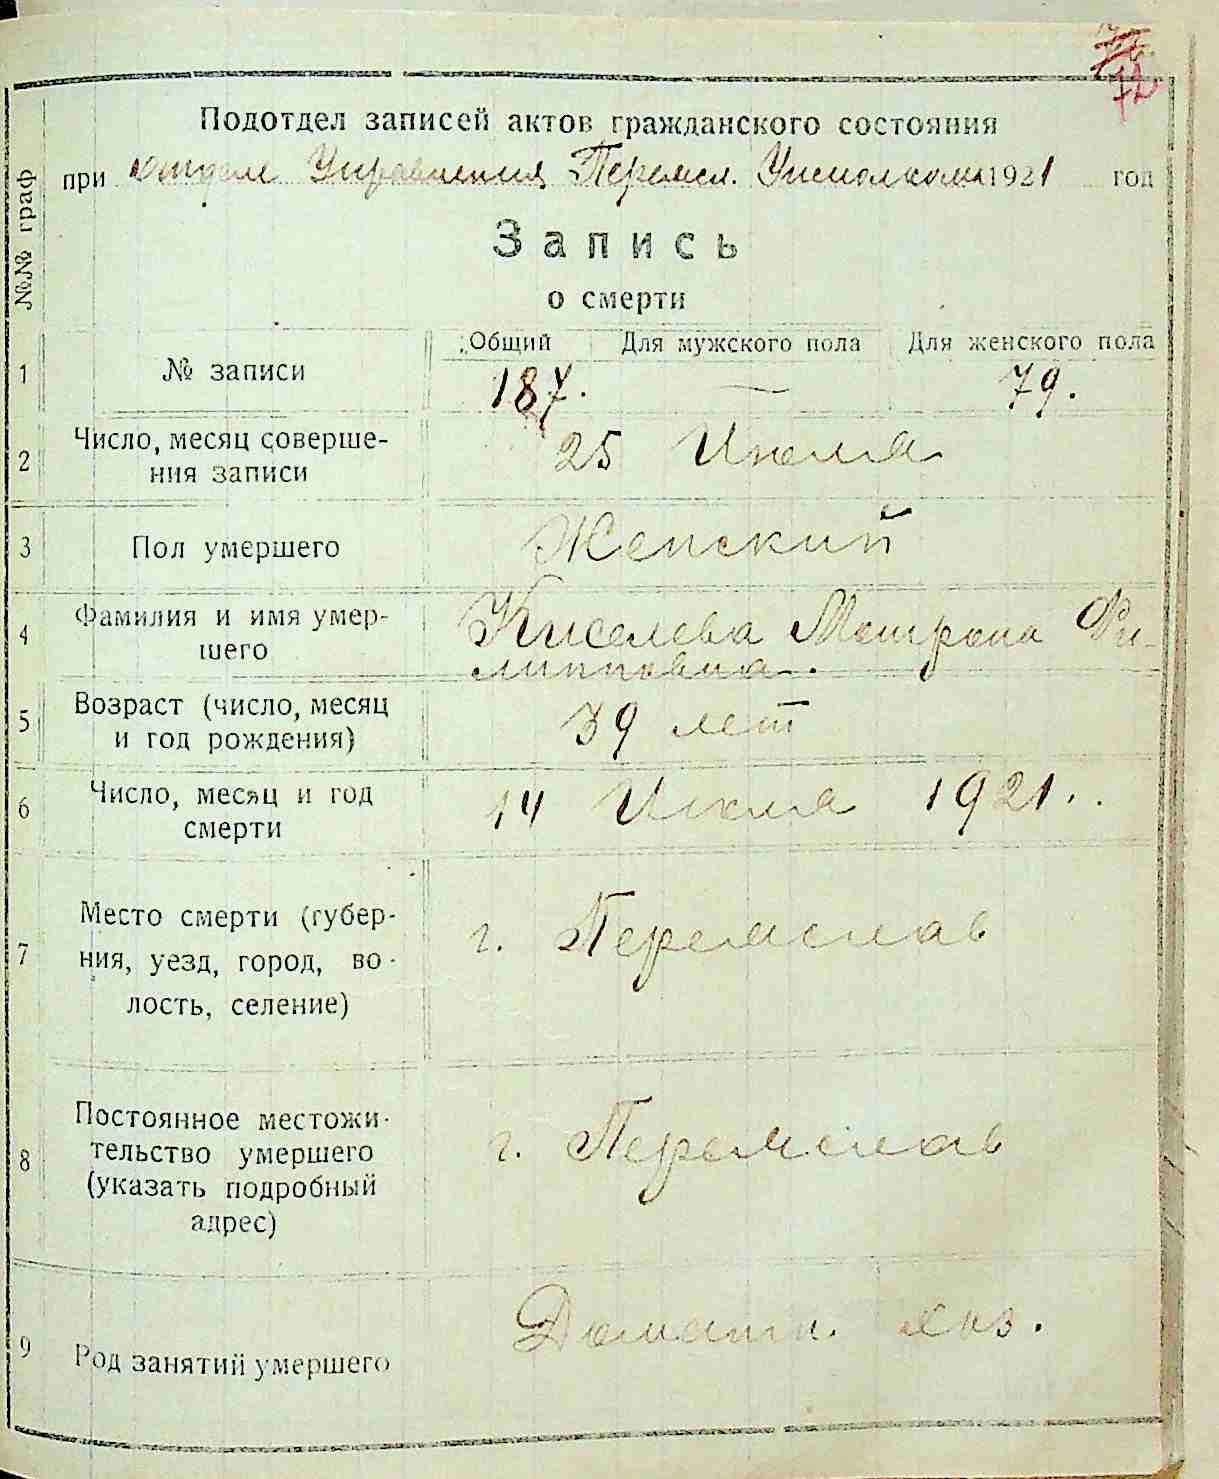 72
Подотдел записей актов гражданского состояния
№№ граф
при отделе Управления Перемсл. Уисполкома 1921 год
Запись
о смерти
Общий Для мужского пола Для женского пола
1 № записи 187. — 79.
2 Число, месяц соверше-
ния записи
25 Июля
3 Пол умершего Женский
4 Фамилия и имя умер-
шего
Киселева Матрона Фи-
липповна.
5 Возраст (число, месяц
и год рождения)
39 лет
6 Число, месяц и год
смерти
14 Июля 1921.
7 Место смерти (губер-
ния, уезд, город, во-
лость, селение)
г. Перемслав
8 Постоянное местожи-
тельство умершего
(указать подробный
адрес)
г. Перемслав
9 Род занятий умершего
Домашн. хоз.